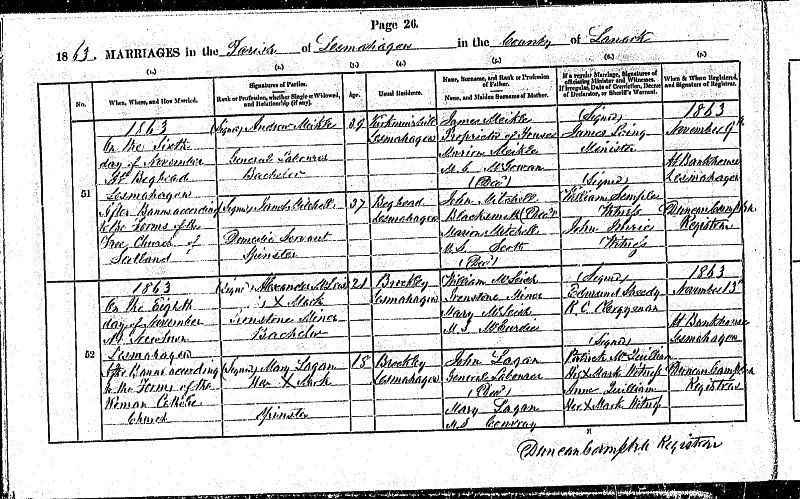 Page 26.
1863. MARRIAGES in the Parish of Lesmahagow in the County of Lanark
(1.) (2.) (3.) (4.) (5.) (6.) (7.)
No.
When, Where, and How Married.
Signatures of Parties.
Rank or Profession, whether Single or Widowed, and Relationship (if any).
Age.
Usual Residence.
Name, Surname, and Rank or Profession of Father.
Name, and Maiden Surname of Mother.
If a regular Marriage, Signatures of officiating Minister and Witnesses.
If irregular, Date of Conviction, Decree of Declarator, or Sheriff's Warrant.
When & Where Registered, and Signature of Registrar.
51
1863
On the Sixth
day of November
At Boghead
Lesmahagow
After Banns according
to the Forms of the
Free Church of
Scotland
(Signed) Andrew Meikle
General Labourer
Bachelor
(Signed) Mitchell
Domestic Servant
Spinster
39
37
Kirkmuirhill
Lesmahagow
Boghead
Lesmahagow
James Meikle
Proprietor of Houses
Marion Meikle
M.S. McGowan
(Decd)
John Mitchell
Blacksmith (Decd)
Marion Mitchell
M.S. Scott
(Decd)
(Signed)
James Laing
Minister
(Signed)
William Semple
Witness
John
Witness
1863
November 9th
At Bankhouse
Lesmahagow
Duncan Campbell
Registrar
52
1863
On the Eighth
day of November
At
Lesmahagow
After Banns according
to the Forms of the
Roman Catholic
Church
(Signed) Alexander
his X Mark
Ironstone Miner
Bachelor
(Signed) Mary Lagan
Her X Mark
Spinster
21
18
Brockley
Lesmahagow
Brockley
Lesmahagow
William
Ironstone Miner
Mary
M.S. McCurdie
John Lagan
General Labourer
(Decd)
Mary Lagan
M.S. Conway
(Signed)
Edmund
R.C. Clergyman
(Signed)
Patrick McQuillian
His X Mark Witness
Anne Quillian
Her X Mark Witness
1863
November 13th
At Bankhouse
Lesmahagow
Duncan Campbell
Registrar
Duncan Campbell Registrar